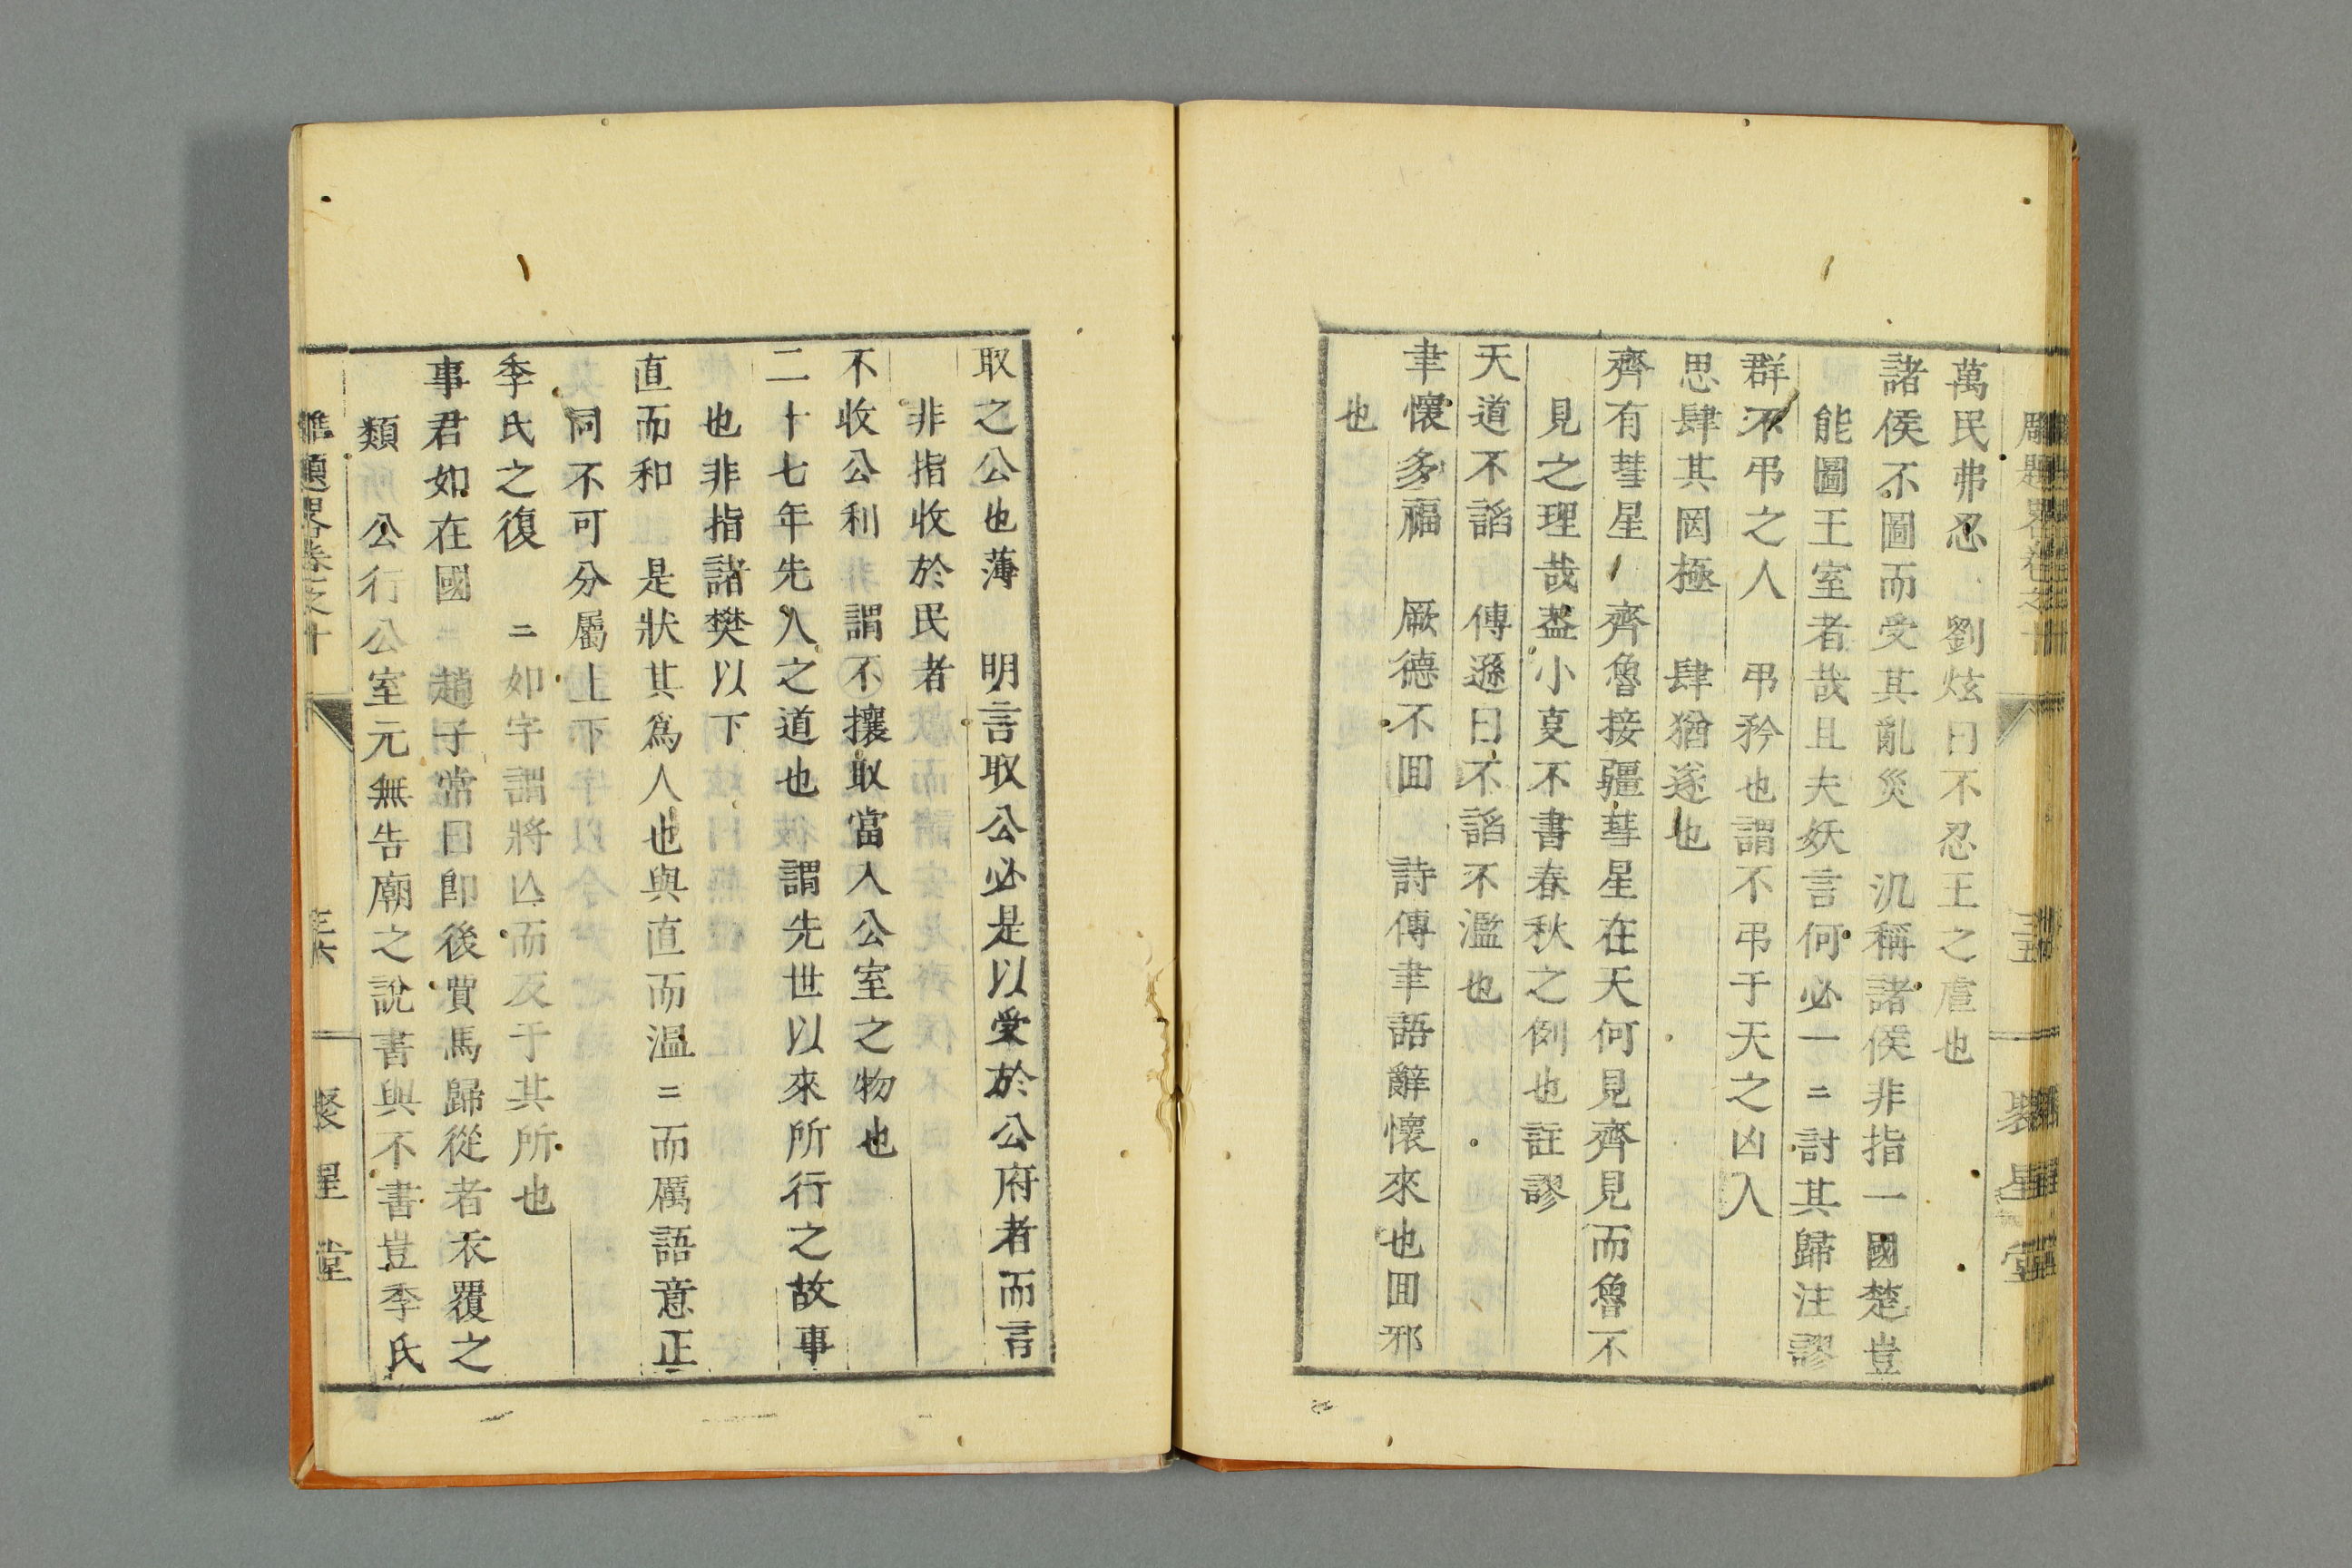 萬民弗忍　劉炫曰不忍王之虐也
諸侯不圖而受其亂災　汎稱諸侯非指一國楚豈
能圖王室者哉且夫妖言何必一二討其歸注謬
群不弔之人　弔矜也謂不弔于天之凶人
思肆其罔極　肆猶遂也
齊有彗星　齊魯接疆彗星在天何見齊見而魯不
見之理哉蓋小変不書春秋之例也註謬
天道不謟　傳遜曰不謟不濫也
聿懷多福　厥德不囬　詩傳聿語辭懷來也囬邪
也
雕題畧卷之十　三十五　聚星堂
取之公也薄　明言取公必是以受於公府者而言
非指收於民者
不收公利　謂不攘取當入公室之物也
二十七年先人之道也　謂先世以來所行之故事
也非指諸樊以下
直而和　是狀其爲人也與直而温二而厲語意正
同不可分屬上下
季氏之復　二如字謂將亾而反于其所也
事君如在國　二趙子常曰卽後賈馬歸從者衣覆之
類　公行公室元無告廟之說書與不書豈季氏
雕題畧卷之十　三十六　聚星堂